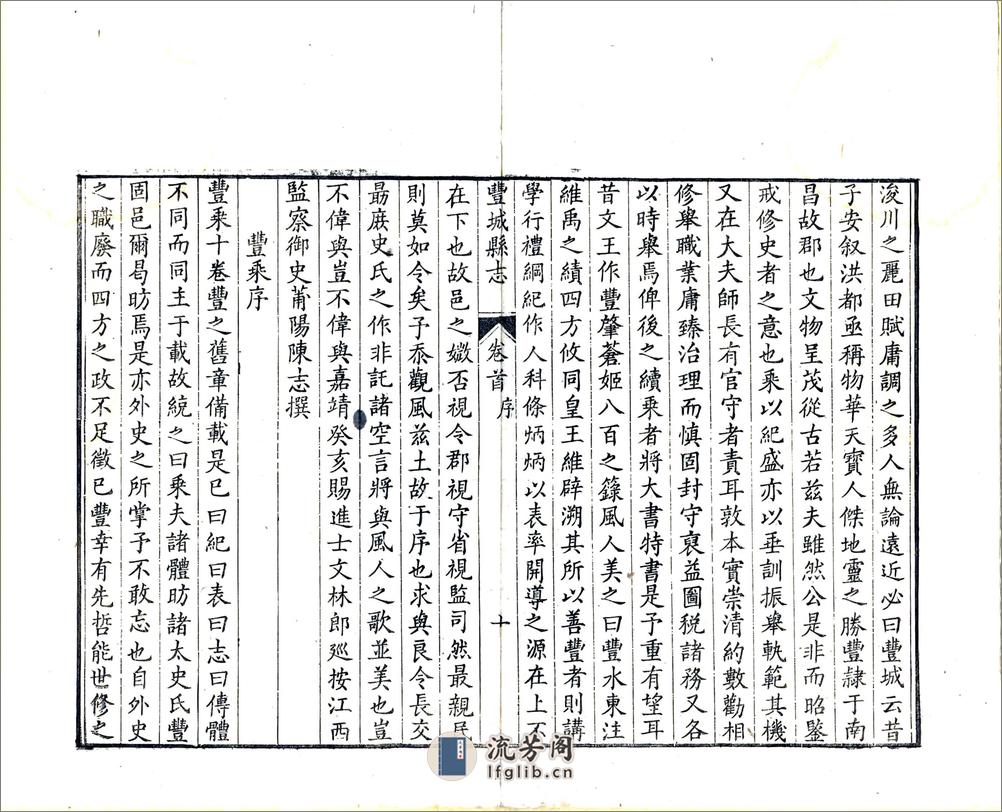 浚川之麗田賦庸調之多人無論遠近必曰豐城云昔
子安叙洪都亟稱物華天寶人傑地靈之勝豐隷于南
昌故郡也文物呈茂從古若茲夫雖然公是非而昭鑒
戒修史者之意也乘以紀盛亦以垂訓振舉軌範其機
又在大夫師長有官守者責耳敦本實崇清約數勸相
修舉職業庸臻治理而慎固封守裒益圖稅諸務又各
以時舉焉俾後之續乘者將大書特書是予重有望耳
昔文王作豐肇蒼姬八百之籙風人美之曰豐水東注
維禹之績四方攸同皇王維辟溯其所以善豐者則講
學行禮綱紀作人科條炳炳以表率開導之源在上不
豐城縣志 卷首 序 十
在下也故邑之媺否視令郡視守省視監司然最親民
則莫如令矣予忝觀風兹土故于序也求與良令長交
勗庶史氏之作非託諸空言將與風人之歌並美也豈
不偉與豈不偉與嘉靖癸亥賜進士文林郎廵按江西
監察御史莆陽陳志撰
豐乘序
豐乘十卷豐之舊章備載是已曰紀曰表曰志曰傳體
不同而同主于載故統之曰乘夫諸體昉諸太史氏豐
固邑爾曷昉焉是亦外史之所掌予不敢忘也自外史
之職廢而四方之政不足徵已豐幸有先哲能世修之
流芳阁
lfglib.cn